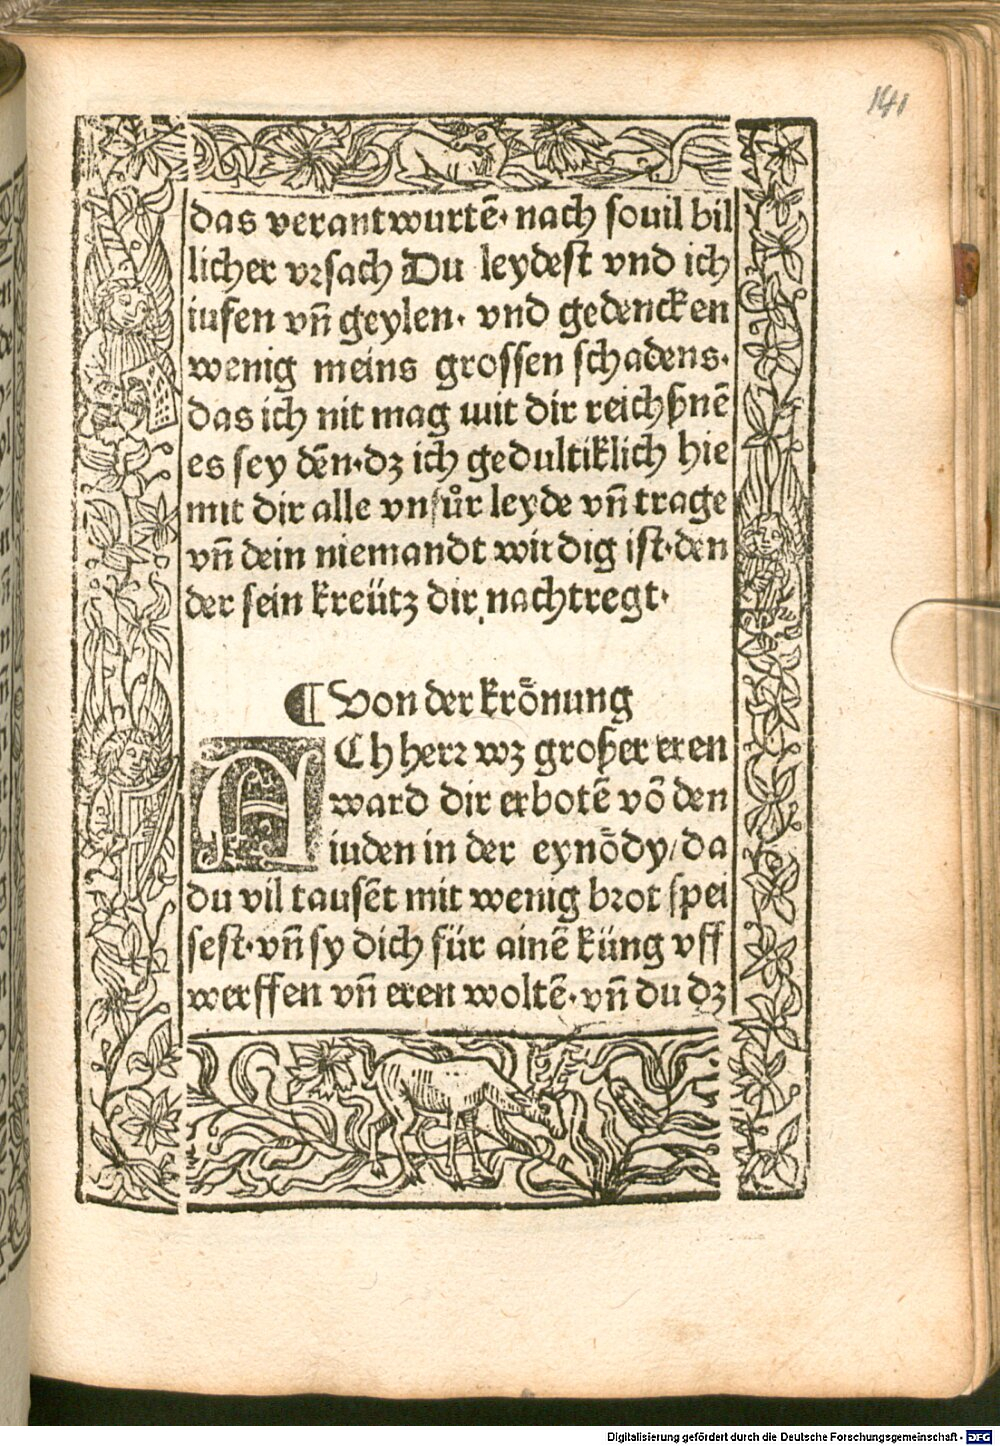 141
das verantwurtē· nach souil bil
licher vrsach Du leydest vnd ich
iufen vn̄ geylen· vnd gedencken
wenig meins grossen schadens·
das ich nit mag mit dir reichßnē
es sey dēn·dz ich gedultiklich hie
mit dir alle vnsůr leyde vn̄ trage
vn̄ dein niemandt wirdig ist·den
der sein kreütz dir nachtregt·
¶ Von der krönung
ACh herr wz großer eren
ward dir erbotē vō den
iuden in der eynödy/da
du vil tausēt mit wenig brot spei
sest·vn̄ sy dich für ainē küng vff
werffen vn̄ eren woltē·vn̄ du dz
Digitalisierung gefördert durch die Deutsche Forschungsgemeinschaft - DFG